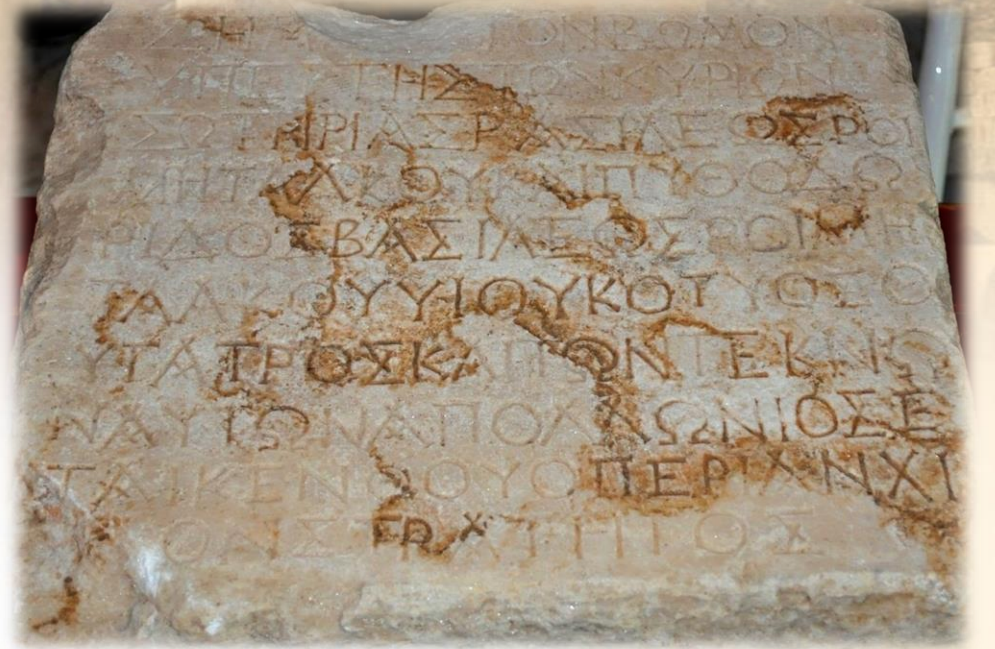 ΤΟΝΒΩΜΟΝ
ΥΠΕΡΤΗΣΤΩΝΚΥΡΙΩΝ
ΣΩΤΗΡΙΑΣΒΑΣΙΛΕΩΣΡΟΙ
ΜΗΤΑΛΚΟΥΚΑΙΠΥΘΟΔΩ
ΡΙΔΟΣΒΑΣΙΛΕΩΣΡΟΙΜΗ
ΤΑΛΚΟΥΥΙΟΥΚΟΤΥΟΣΘ
ΥΓΑΤΡΟΣΚΑΙΤΩΝΤΕΚΝΩ
ΝΑΥΤΩΝΑΠΟΛΛΩΝΙΟΣΕ
ΠΤΑΙΚΕΝΘΟΥΟΠΕΡΙΑΝΧΙ
ΑΛΟΝΣΤΡΑΤΗΓΟΣ